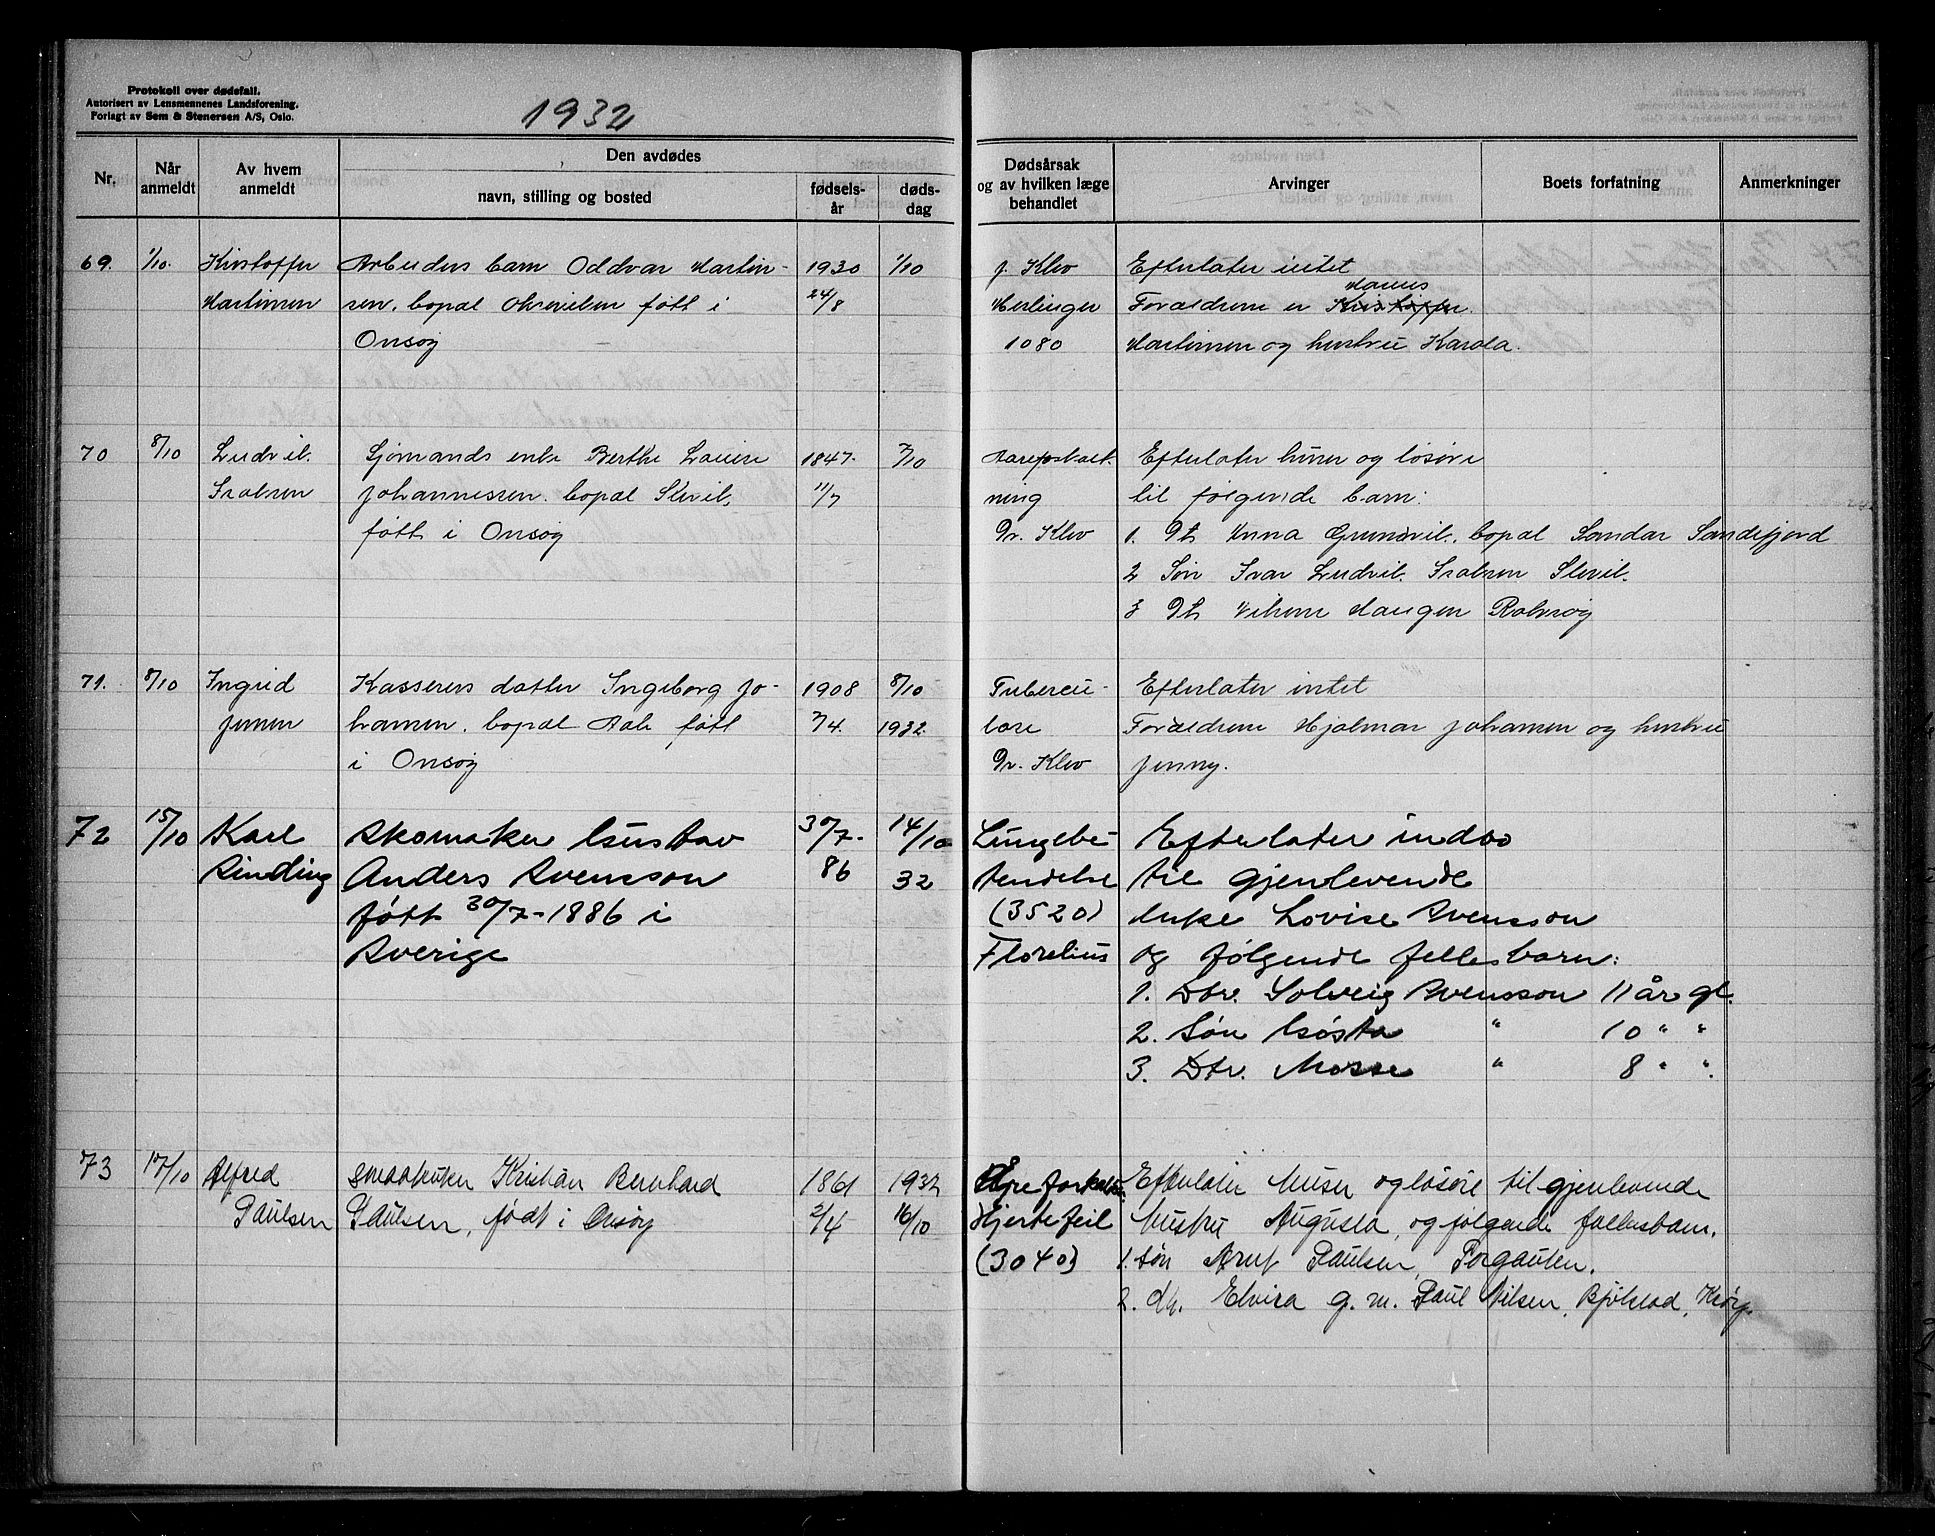 Protokoll over dødsfall.
Autorisert av Lensmennenes Landsforening.
Forlagt av Sem & Stenersen A/S, Oslo.
1932
Nr.
Når anmeldt
Av hvem anmeldt
Den avdødes
navn, stilling og bosted
fødselsår
dødsdag
Dødsårsak og av hvilken læge behandlet
Arvinger
Boets forfatning
Anmerkninger
69. 1/10. Kristoffer Arbeiders barn Oddvar Martin- 1930 1/10 J. Klev Efterlater intet
Martinsen sen. bopæl født i 24/8 Forældrene er Kristoffer Marius
Onsøy 1080 Martinsen og hustru Karola.
70 8/10 Ludvik Sjømands enke Berthe Lovise 1847. 7/10 Aareforkalk- Efterlater huser og løsøre
Isaksen Johannessen. bopæl Slevik, 11/7 ning til følgende barn:
født i Onsøy Dr. Klev 1. Dt. Anna Grundvik. bopæl Sandar Sandefjord
2 Søn Ivar Ludvik. Isaksen Slevik.
3 Dt. Haugen Rolvsøy
71. 8/10 Ingrid Kasserers datter Ingeborg Jo- 1908 8/10 Tubercu- Efterlater intet
Jensen hansen. bopæl Aale født 7/4. 1932. lose Forældrene Hjalmar Johansen og hustru
i Onsøy Dr. Klev Jenny.
72 15/10 Karl Skomaker Gustav 30/7- 14/10 Lungebe- Efterlater indbo
Sinding Anders Svensson 86 32 tendelse til gjenlevende
født 30/7-1886 i (3520) enke Lovise Svensson
Sverige Florelius og følgende fellesbarn:
1. Dtr. Solveig Svensson 11 år gl.
2. Søn Gösta " 10 " "
3. Dtr. Mosse " 8 " ".
73 17/10 Alfred smaabruker Kristian Bernhard 1861 1932 Åreforkalkn. Efterlater huser og løsøre til gjenlevende
Paulsen Paulsen, født i Onsøy 2/4 16/10 Hjertefeil hustru Augusta, og følgende fællesbarn.
(3040) 1. Søn Arnt Paulsen, Torgauten.
2. dt. Elvira g. m. Paul Nilsen, Bjølstad,